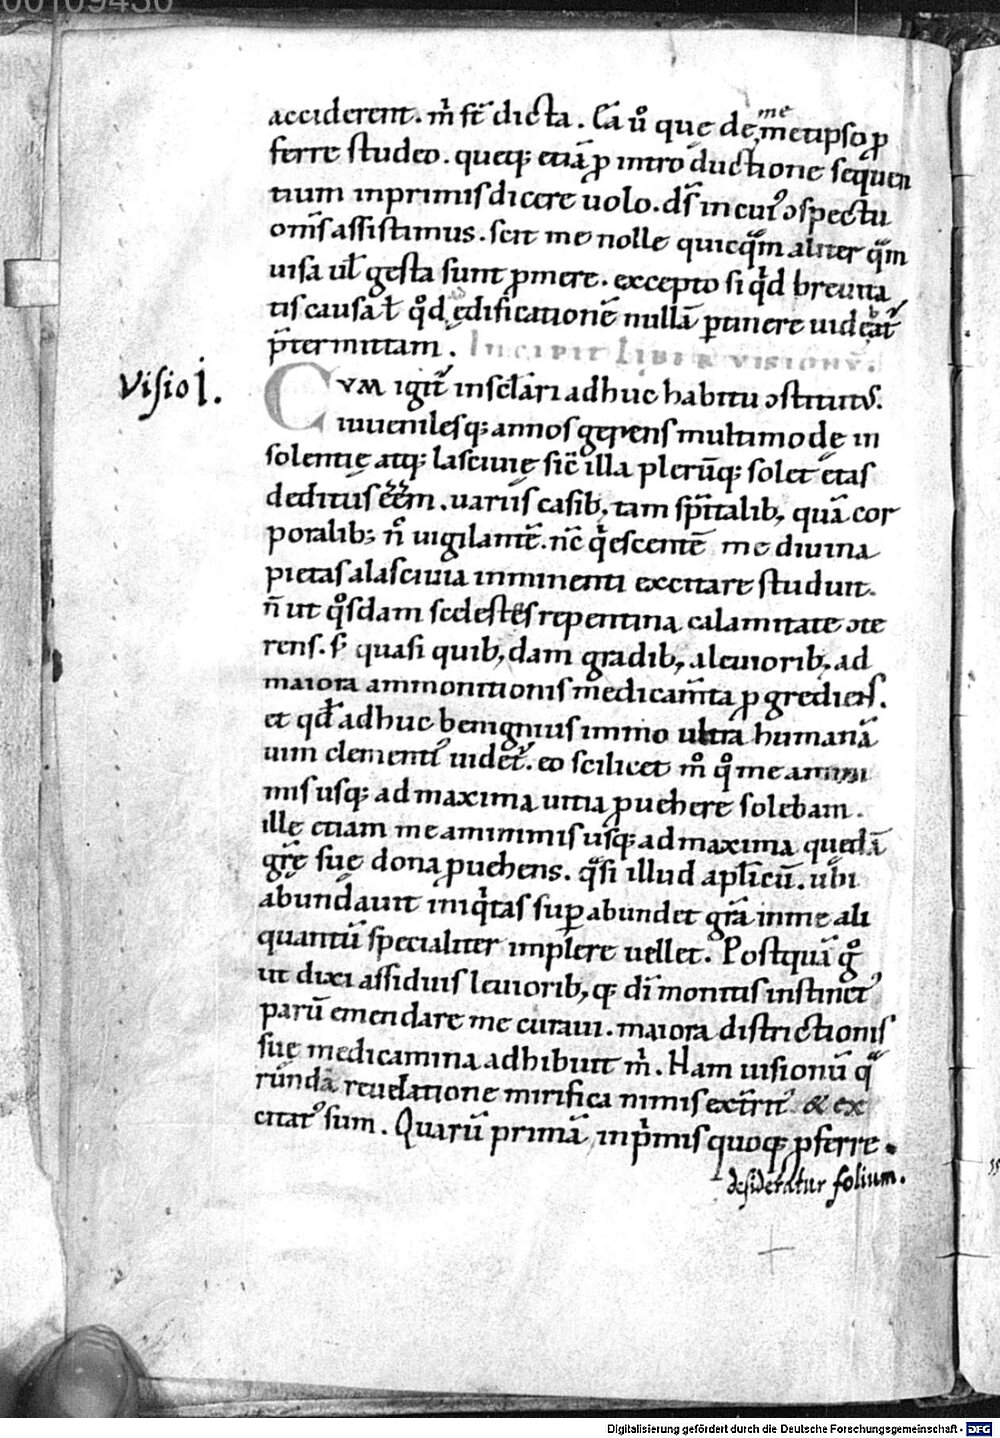 00109430
acciderent. m̄ sc̄ dicta. Ea ū que de me metipso ꝑ
ferre studeo. queq; etiā ꝑ introductione sequen
tium inprimis dicere uolo. ds̄ in cuiꝰ ↄspectu
om̄s assistimus. scit me nolle quicqͣm aliter qͣm
uisa ul̄ gesta sunt ꝓmere. excepto si qͥd breuita
tis causa ł qͦd ędificationē nullā ꝑtinere uideat᷑
p̄termittam. Incipit liber visionū.
Visio I.
Cvm igit᷑ in scl̄ari adhuc habitu ↄstitutꝰ.
iuuenilesq; annos gerens multimodę in
solentię atq; lasciuię sic̄ illa plerūq; solet ętas
deditus eēm. uariis casib; tam sp̄italib; quā cor
poralib; n̄ uigilantē. nc̄ qͥescentē me diuina
pietas a lasciuia inminenti excitare studuit.
n̄ ut qͦsdam scelestes repentina calamitate ↄte
rens. s; quasi quib;dam gradib; a leuiorib; ad
maiora ammonitionis medicam̄ta ꝓgrediens.
et qd̄ adhuc benignius immo ultra humanā
uim clementiꝰ uidet᷑. eo scilicet m̊ qͦ me a mini
mis usq; ad maxima uitia ꝓuehere solebam.
ille etiam me a minimis usq; ad maxima quedā
grę̄ suę dona ꝓuehens. qͣsi illud aplicū. ubi
abundauit iniqͥtas suꝑabundet gr̄a in me ali
quantū specialiter implere uellet. Postquā gͦ
ut dixi assiduis leuiorib;q; di̅ monitis instinctꝰ
parū emendare me curaui. maiora districtionis
suę medicamina adhibuit m̄. Nam uisionū qͣ
rundā reuelatione mirifica nimis ext᷑ritꝰ & ex
citatꝰ sum. Quarū primā inpͥmis quoq; ꝓferre.
desideratur folium.
Digitalisierung gefördert durch die Deutsche Forschungsgemeinschaft - DFG